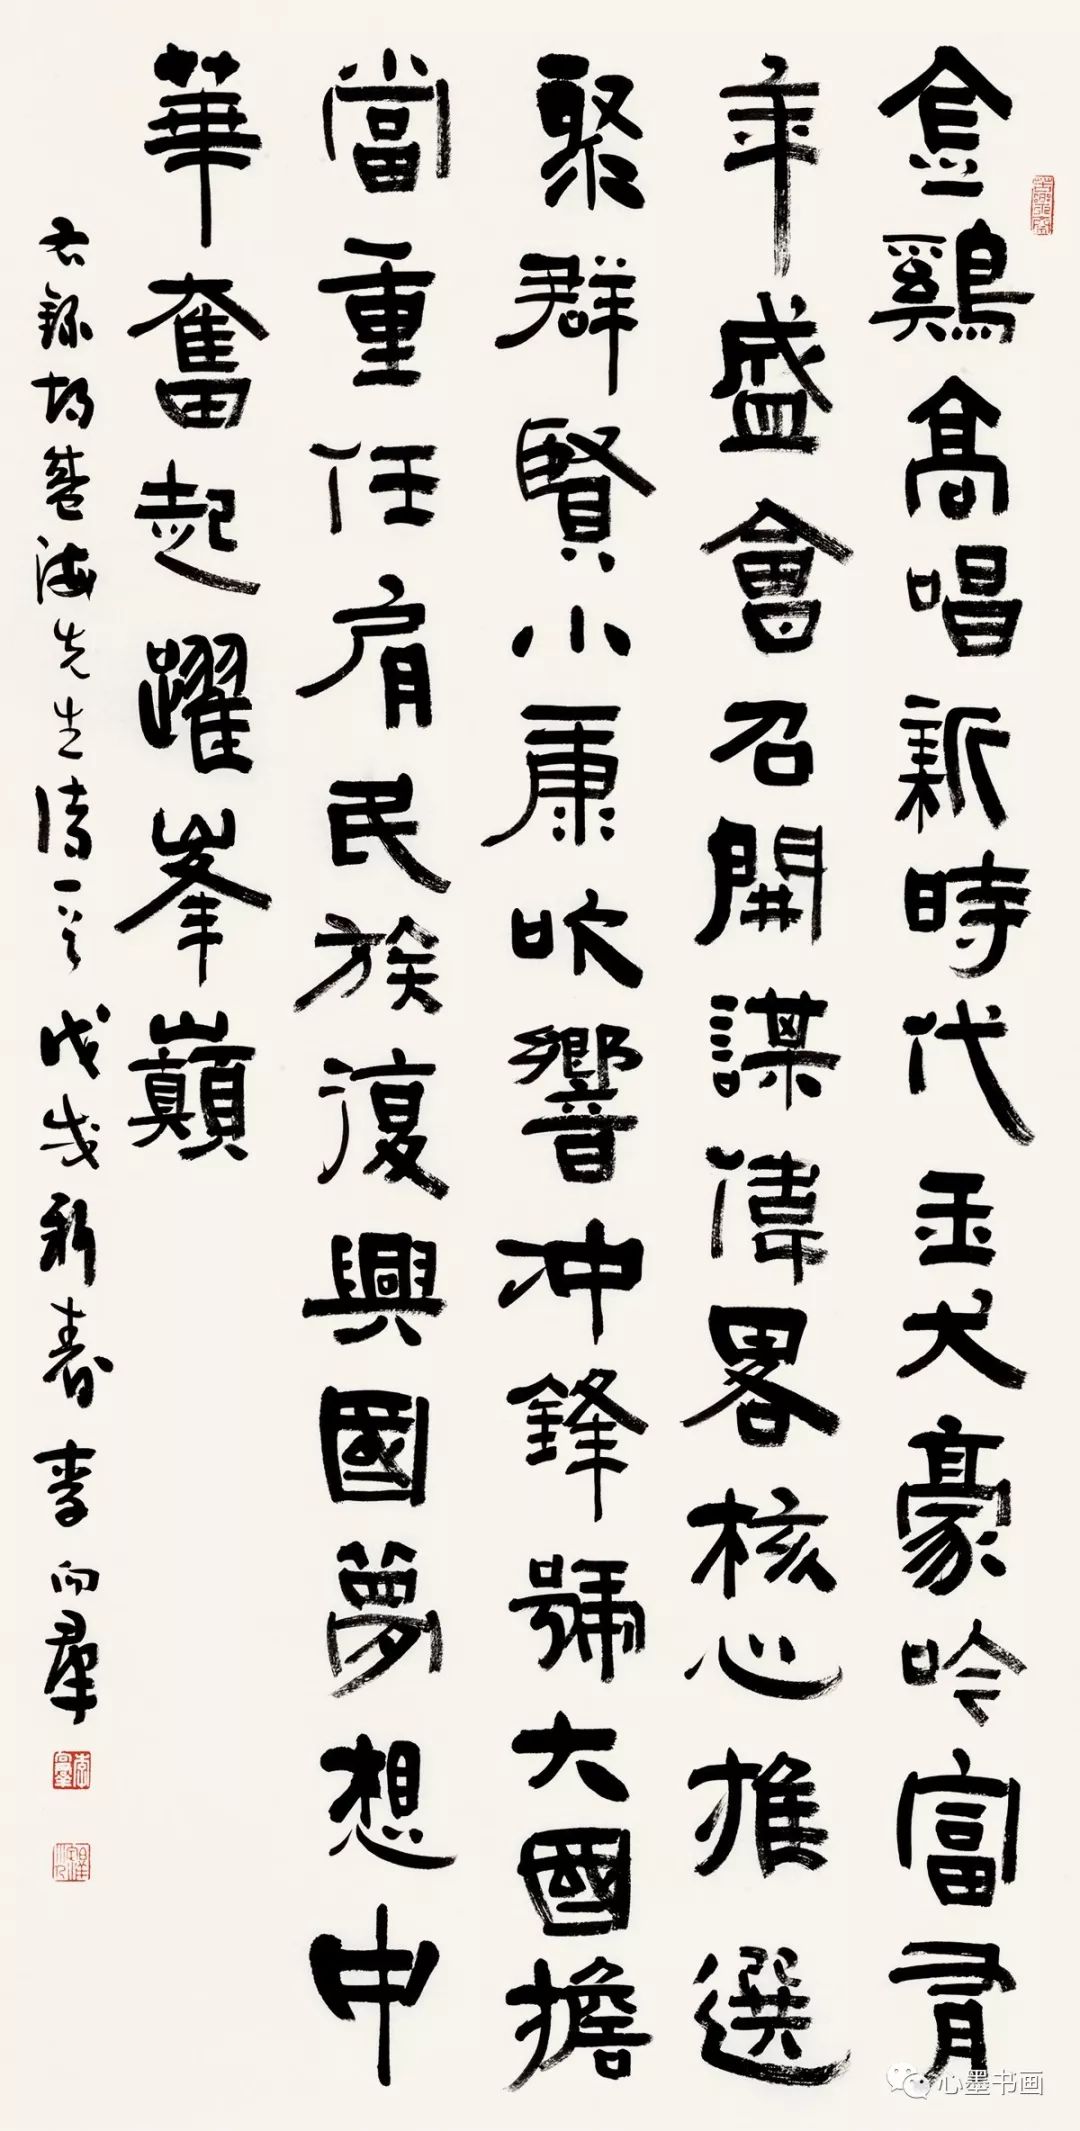 金鷄高唱新時代玉犬豪吟富有
年盛會召開謀偉畧核心推選
聚群賢小康吹響冲鋒號大國擔
當重任肩民族復興國夢想中
華奮起躍峯巔
右錄海先生詩一首 戊戌新春李向羣
心墨书画